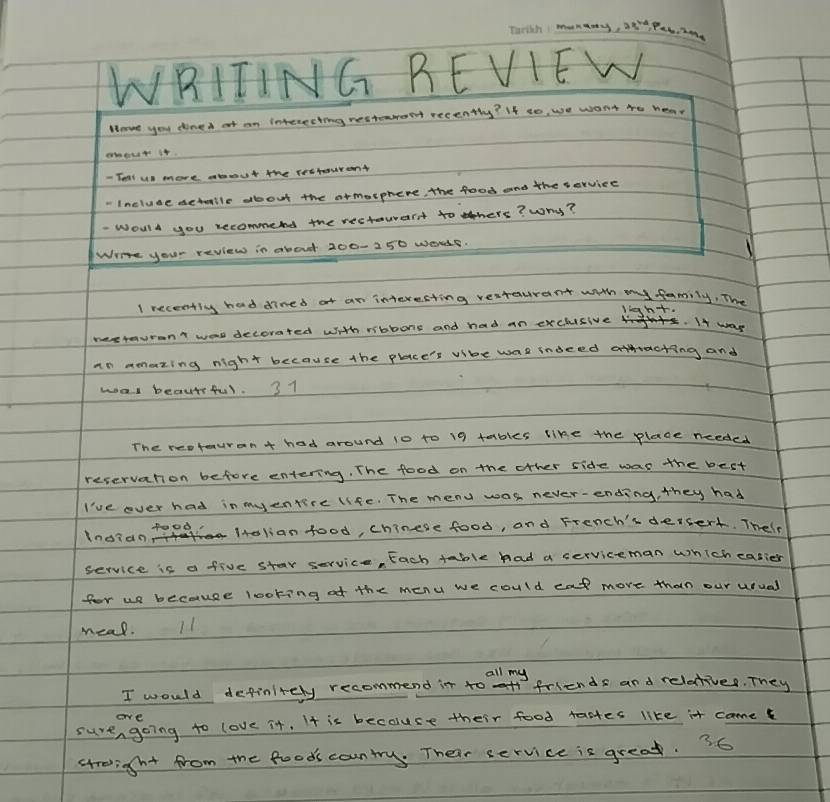 Tarikh : Monday, 23rd, Feb, 2026
WRITING REVIEW
Have you dined at an interecting restaurant recently? If so, we want to hear
about it.
- Tell us more about the restaurant
- Include details about the atmosphere, the food and the service
- Would you recommend the restaurant to others? Why?
Write your review in about 200-250 words.
I recently had dined at an interesting restaurant with my family. The
restaurant was decorated with ribbons and had an exclusive light. It was
an amazing night because the place's vibe was indeed attracting and
was beautiful. 37
The restaurant had around 10 to 19 tables like the place needed
reservation before entering. The food on the other side was the best
I've ever had in my entire life. The menu was never-ending, they had
Indian food, Italian food, Chinese food, and French's dessert. Their
service is a five star service. Each table had a serviceman which easier
for us because looking at the menu we could eat more than our usual
meal. 11
I would definitely recommend it to all my friends and relatives. They
sure are going to love it. It is because their food tastes like it came
straight from the food's country. Their service is great. 36